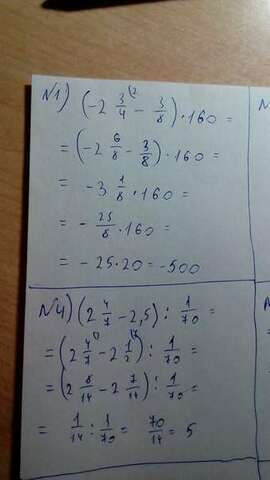 N1) (-2 3/4 (2 - 3/8) · 160 =
= (-2 6/8 - 3/8) · 160 =
= -3 1/8 · 160 =
= - 25/8 · 160 =
= -25 · 20 = -500
N4) (2 4/7 - 2,5) : 1/70 =
= (2 4/7 - 2 1/2) : 1/70 =
= (2 8/14 - 2 7/14) : 1/70 =
= 1/14 : 1/70 = 70/14 = 5